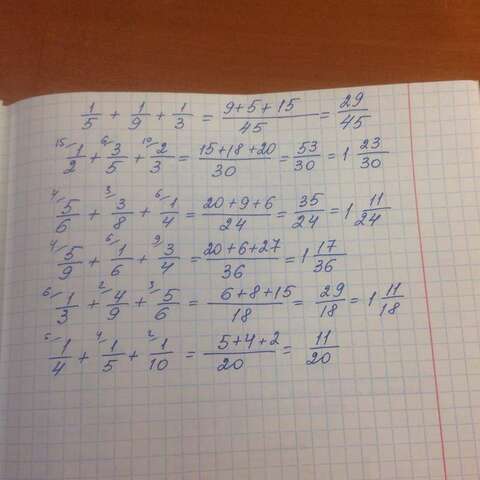 1/5 + 1/9 + 1/3 = (9+5+15)/45 = 29/45
15/ 1/2 + 6/ 3/5 + 10/ 2/3 = (15+18+20)/30 = 53/30 = 1 23/30
4/ 5/6 + 3/ 3/8 + 6/ 1/4 = (20+9+6)/24 = 35/24 = 1 11/24
4/ 5/9 + 6/ 1/6 + 9/ 3/4 = (20+6+27)/36 = 1 17/36
6/ 1/3 + 2/ 4/9 + 3/ 5/6 = (6+8+15)/18 = 29/18 = 1 11/18
5/ 1/4 + 4/ 1/5 + 2/ 1/10 = (5+4+2)/20 = 11/20